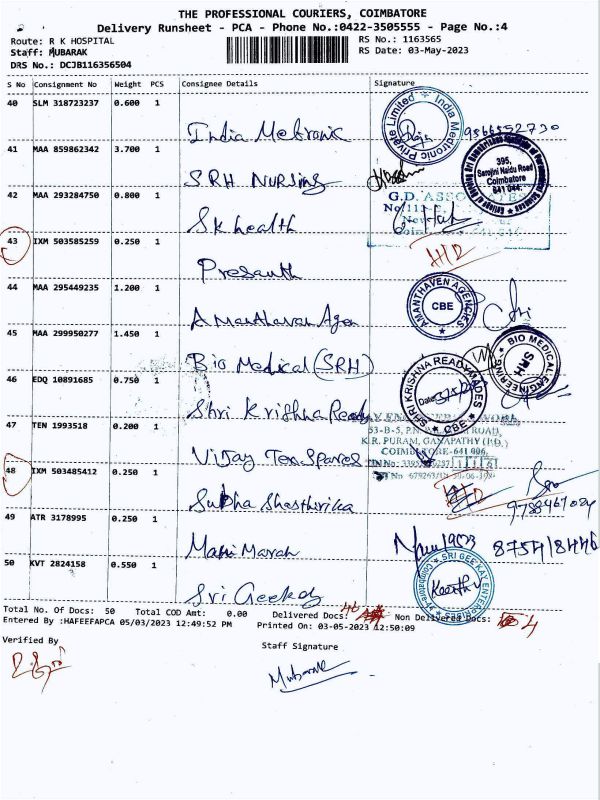 THE PROFESSIONAL COURIERS, COIMBATORE
Delivery Runsheet - PCA - Phone No.:0422-3505555 - Page No.:4
Route: R K HOSPITAL
RS No.: 1163565
Staff: MUBARAK
RS Date: 03-May-2023
DRS No.: DCJB116356504
S No Consignment No Weight PCS Consignee Details Signature
40 SLM 318723237 0.600 1
India Metronic
India Medtronic Private Limited
9566552730
41 MAA 859862342 3.700 1
SRH Nursing
395,
Sarojini Naidu Road
Coimbatore
641 044.
42 MAA 293284750 0.800 1
Sk health
G.D. ASSOCIATES
43 IXM 503585259 0.250 1
Prasanth
44 MAA 295449235 1.200 1
Amanthavan Agen
AMANTHAVEN AGENCIES
CBE
Sri
45 MAA 299950277 1.450 1
Bio Medical (SRH)
BIO MEDICAL ENGINEERING
SRH
46 EDQ 10891685 0.750 1
Shri Krishna Ready
SHRI KRISHNA READYMADES
Date: 3/5/23
CBE
47 TEN 1993518 0.200 1
Vijay Ten Spares
K.R. PURAM, GANAPATHY (P.O.)
COIMBATORE-641 006.
48 IXM 503485412 0.250 1
Subha Shasthrika
49 ATR 3178995 0.250 1
Mani Maran
875418446
50 KVT 2824158 0.550 1
Sri Geekay
SRI GEE KAY ENTERPRISES
Coimbatore
Keerthi
Total No. Of Docs: 50 Total COD Amt: 0.00 Delivered Docs: 46 Non Delivered Docs: 4
Entered By :HAFEEFAPCA 05/03/2023 12:49:52 PM Printed On: 03-05-2023 12:50:09
Verified By
Staff Signature
Mubarak